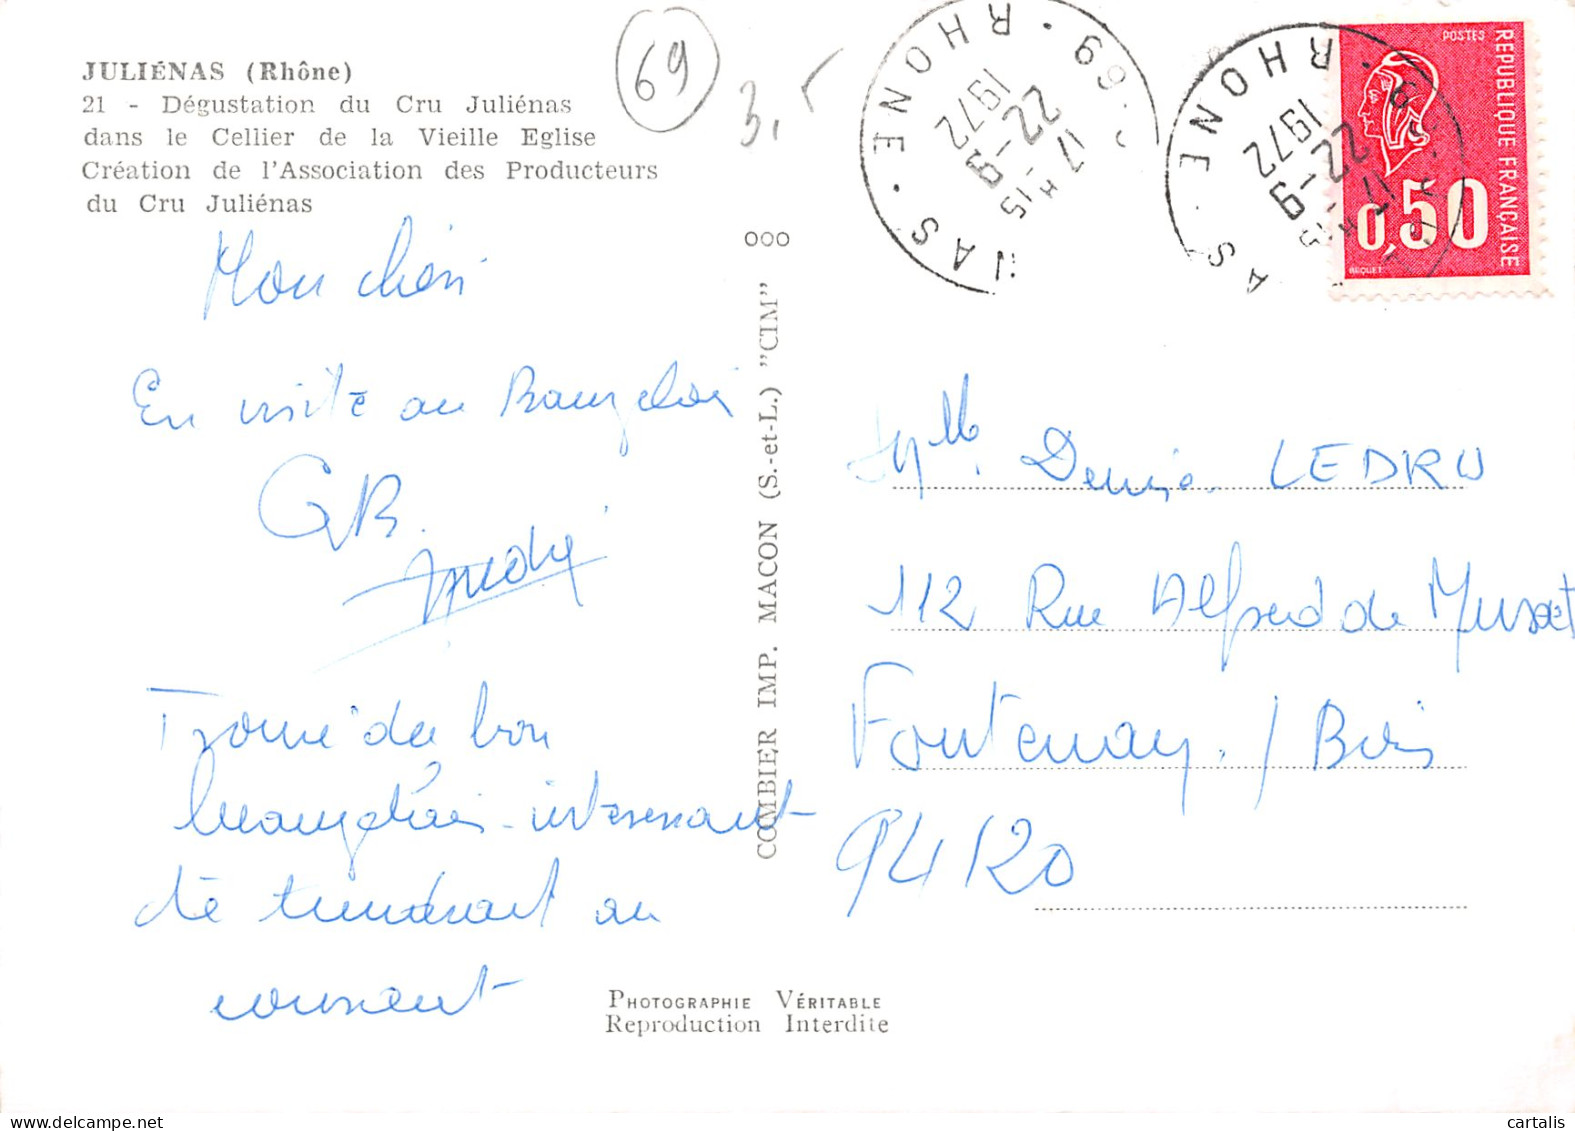 JULIÉNAS (Rhône)
21 - Dégustation du Cru Juliénas
dans le Cellier de la Vieille Eglise
Création de l'Association des Producteurs
du Cru Juliénas
69
3,
Mon chéri
En visite au
GB.
Trouvé du bon
intéressant
te au
courant
ooo
COMBIER IMP. MACON (S.-et-L.) "CIM"
PHOTOGRAPHIE VÉRITABLE
Reproduction Interdite
NAS · RHONE · 69
17 H 15
22 - 9
1972
AS · RHONE · 69
17 H 15
22 - 9
1972
POSTES
REPUBLIQUE FRANÇAISE
0,50
BEQUET
Mlle. Denise LEDRU
112 Rue Alfred de Musset
Fontenay. / Bois
94120
cartalis